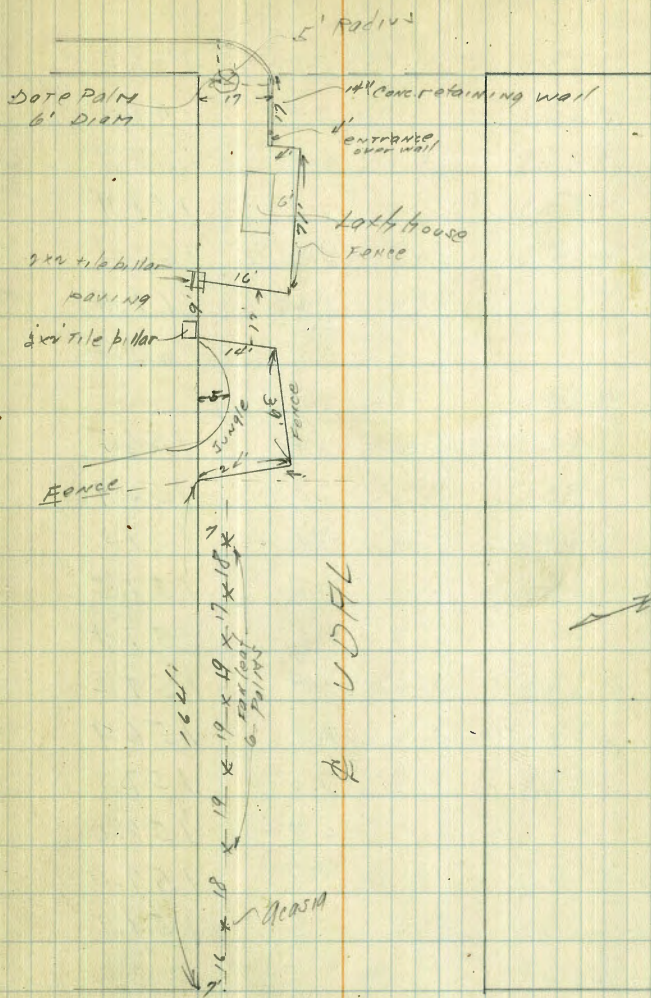 5' Radius
Date Palm
6' Diam
17
17'
14" Conc retaining wall
4'
entrance
over wall
6'
21'
Lath house
Fence
2x2 tile billar
paving
16'
9'
12'
2x2' Tile billar
14'
15
Jungle
39'
Fence
Fence
7
18
17
19
19
19
Fan leaf
6 Palms
162'
18
Acasia
16
7
℄ UDAL